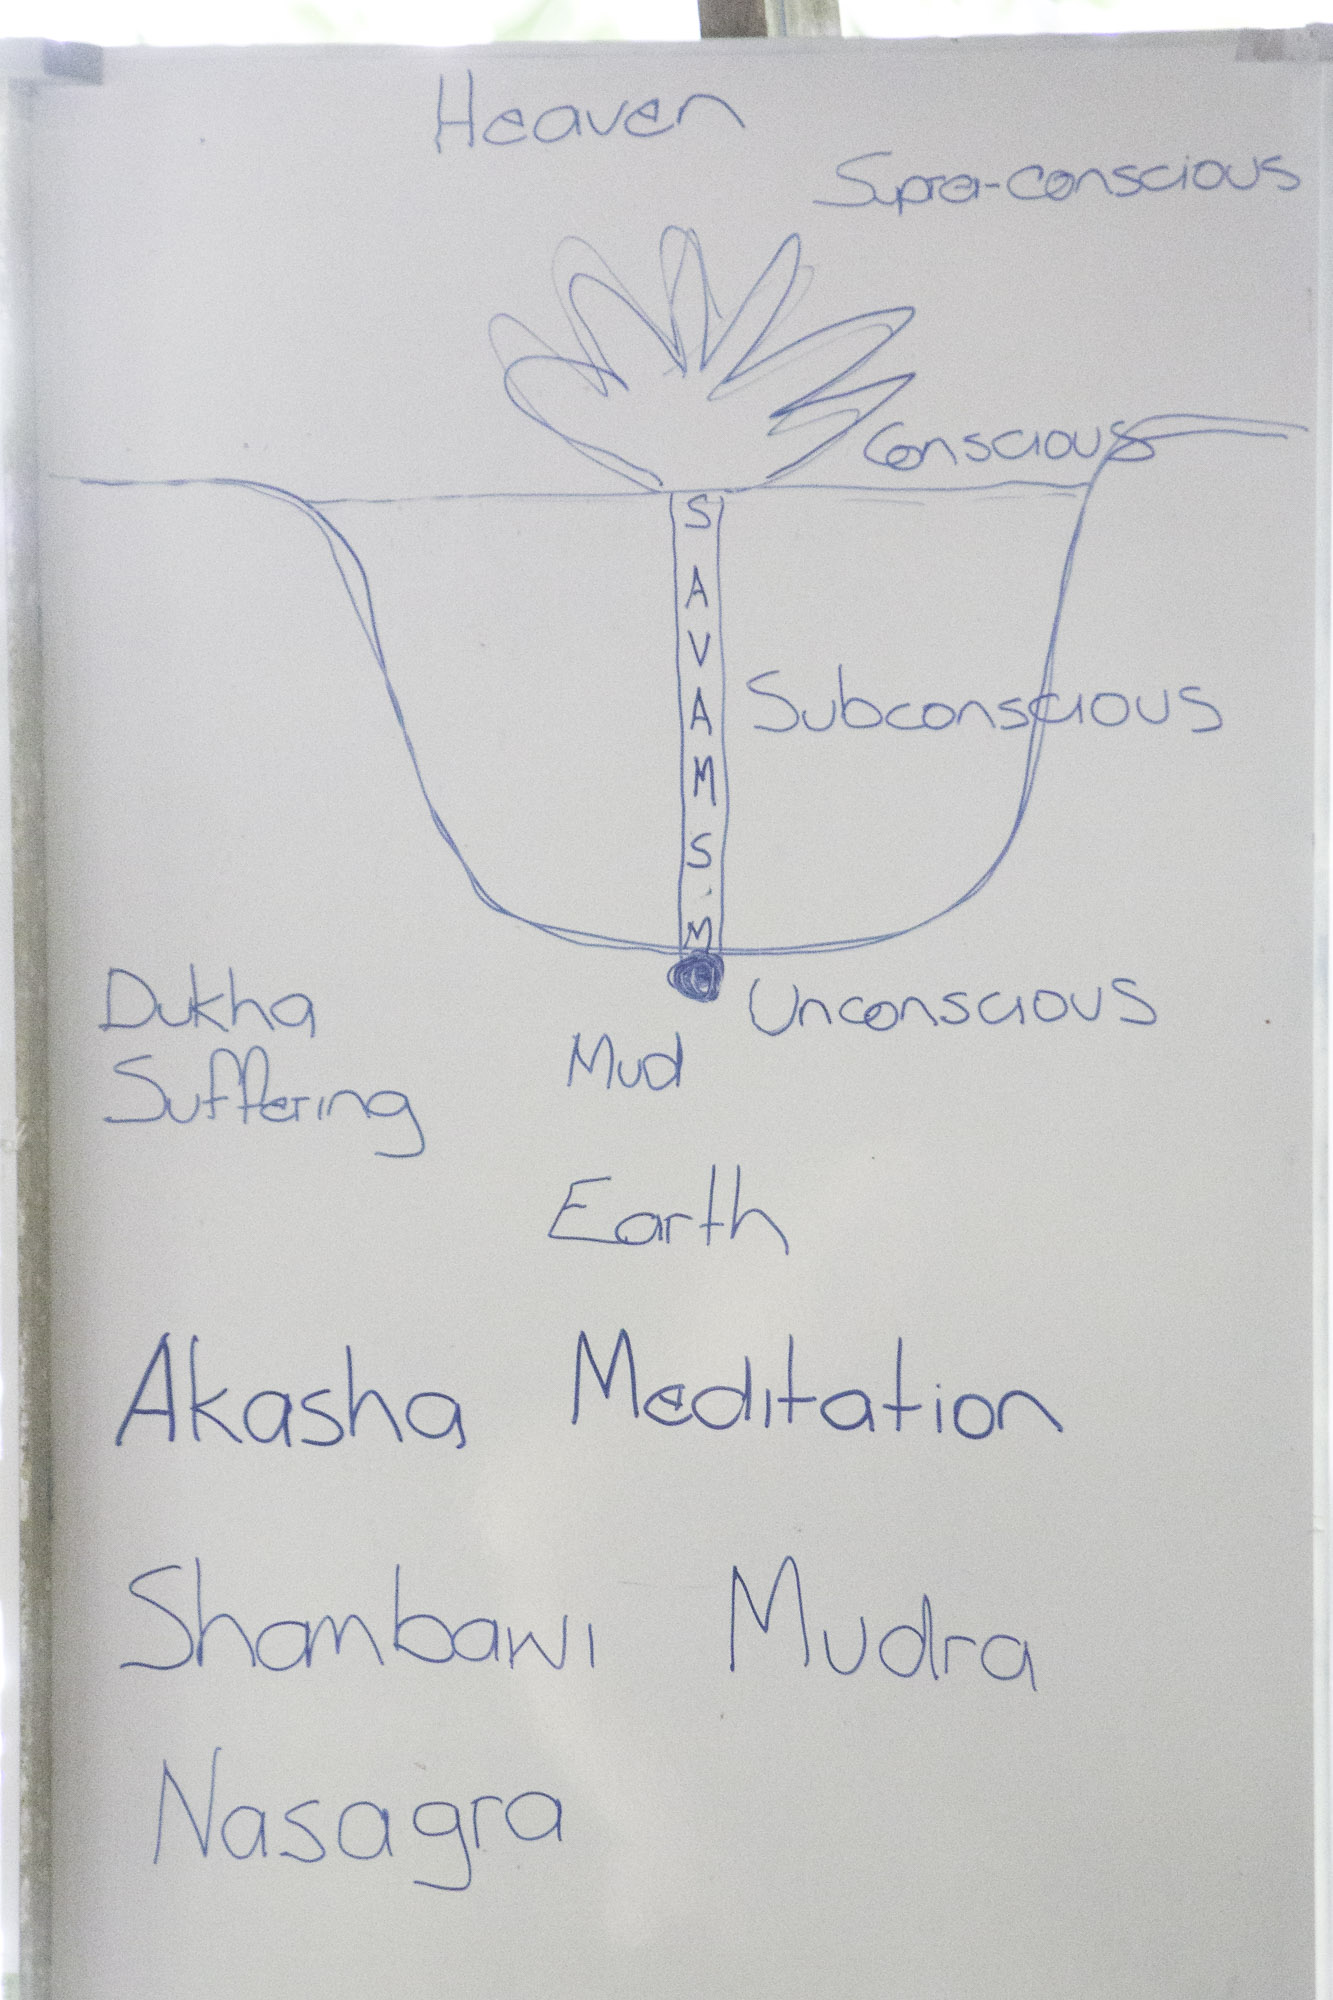 Heaven
Supra-conscious
Conscious
S
A
V
A
M
S
.
M
Subconscious
Unconscious
Dukha
Suffering
Mud
Earth
Akasha Meditation
Shambawi Mudra
Nasagra